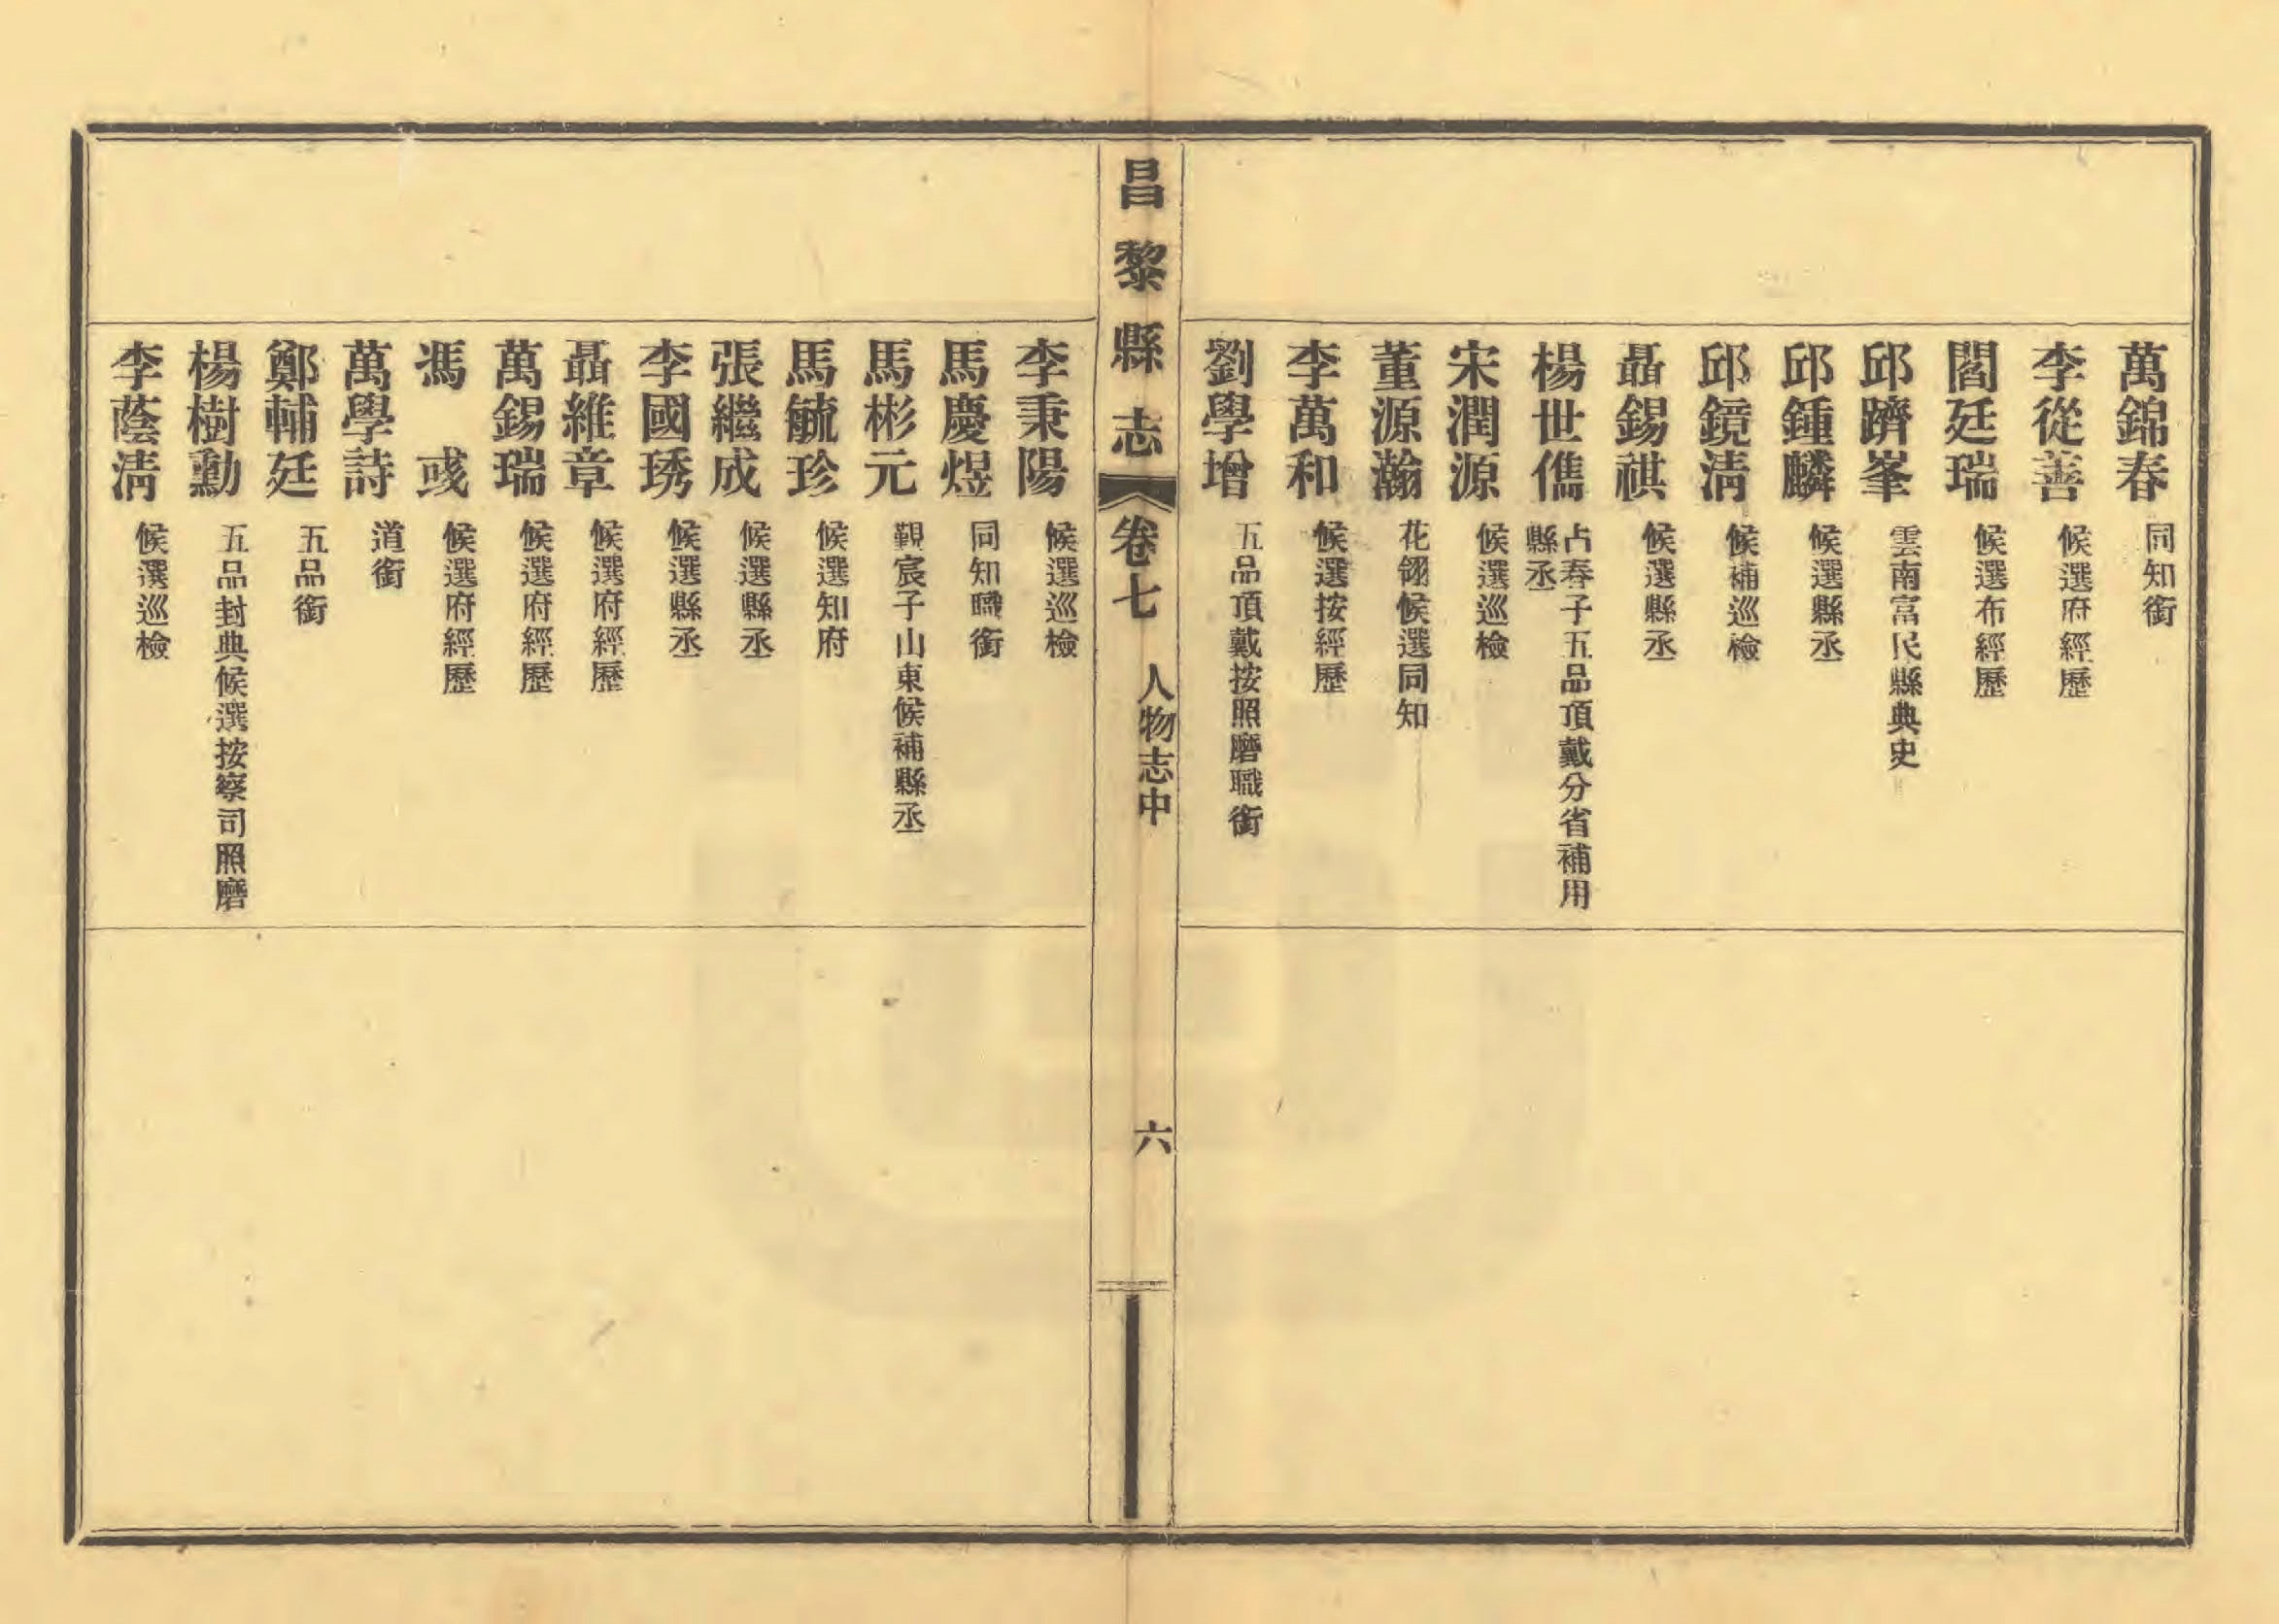 萬錦春 同知銜
李從善 候選府經歷
閻廷瑞 候選布經歷
邱躋峯 雲南富民縣典史
邱鍾麟 候選縣丞
邱鏡清 候補巡檢
聶錫祺 候選縣丞
楊世儁 占春子五品頂戴分省補用
縣丞
宋潤源 候選巡檢
董源瀚 花翎候選同知
李萬和 候選按經歷
劉學增 五品頂戴按照磨職銜
昌黎縣志 卷七 人物志中 六
李秉陽 候選巡檢
馬慶煜 同知職銜
馬彬元 覲宸子山東候補縣丞
馬毓珍 候選知府
張繼成 候選縣丞
李國琇 候選縣丞
聶維章 候選府經歷
萬錫瑞 候選府經歷
馮彧 候選府經歷
萬學詩 道銜
鄭輔廷 五品銜
楊樹勳 五品封典候選按察司照磨
李蔭清 候選巡檢